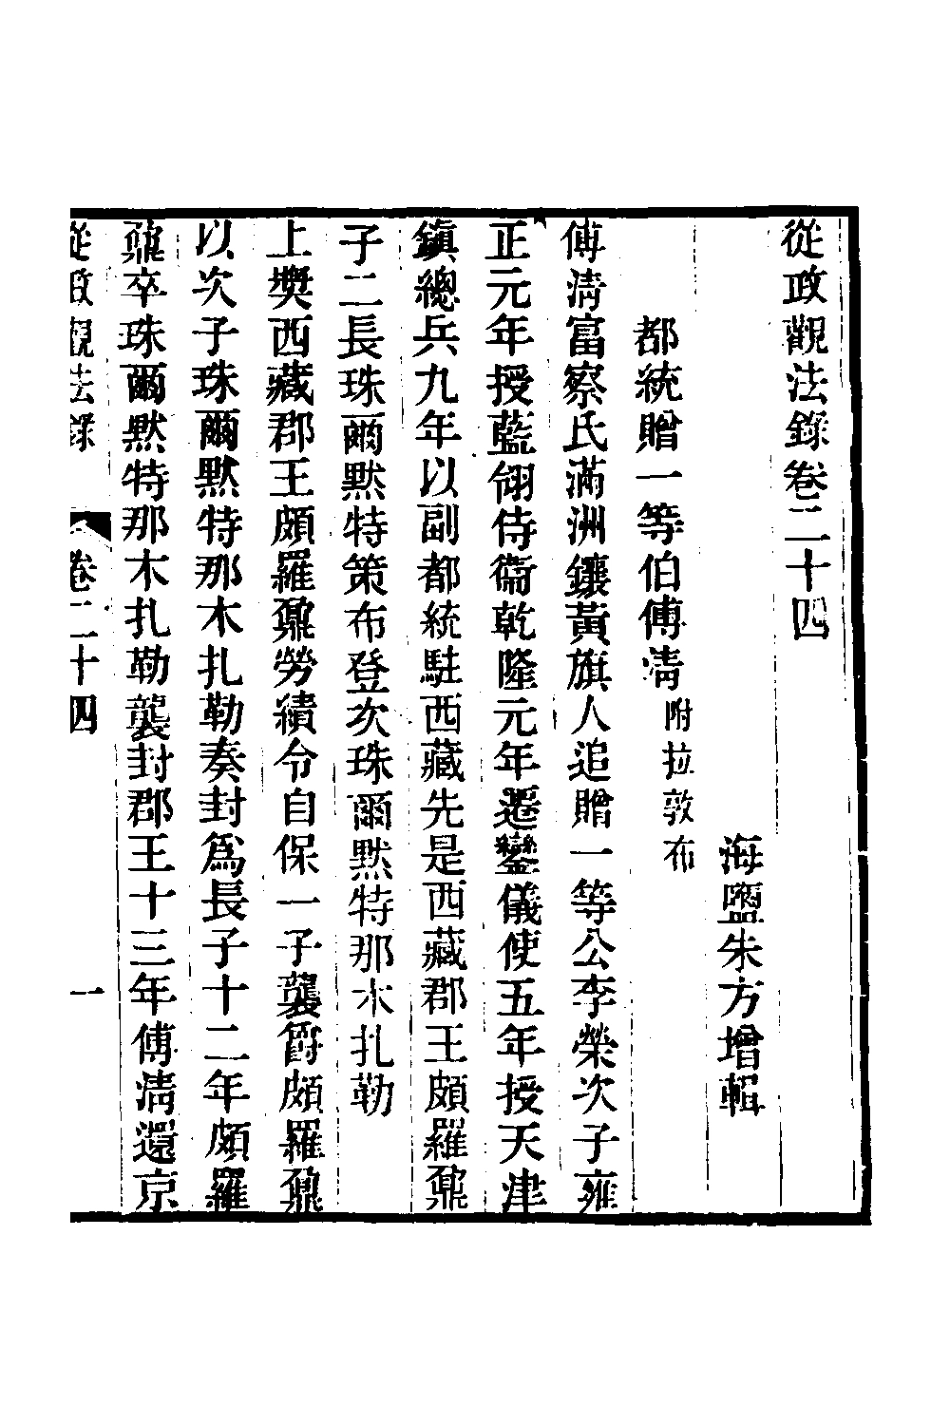 從政觀法錄卷二十四
海鹽朱方增輯
都統贈一等伯傅淸附拉敦布
傅淸富察氏滿洲鑲黃旗人追贈一等公李榮次子雍
正元年授藍翎侍衞乾隆元年遷鑾儀使五年授天津
鎮總兵九年以副都統駐西藏先是西藏郡王頗羅鼐
子二長珠爾默特策布登次珠爾默特那木扎勒
上獎西藏郡王頗羅鼐勞績令自保一子襲爵頗羅鼐
以次子珠爾默特那木扎勒奏封爲長子十二年頗羅
鼐卒珠爾默特那木扎勒襲封郡王十三年傅淸還京
從政觀法錄 卷二十四 一